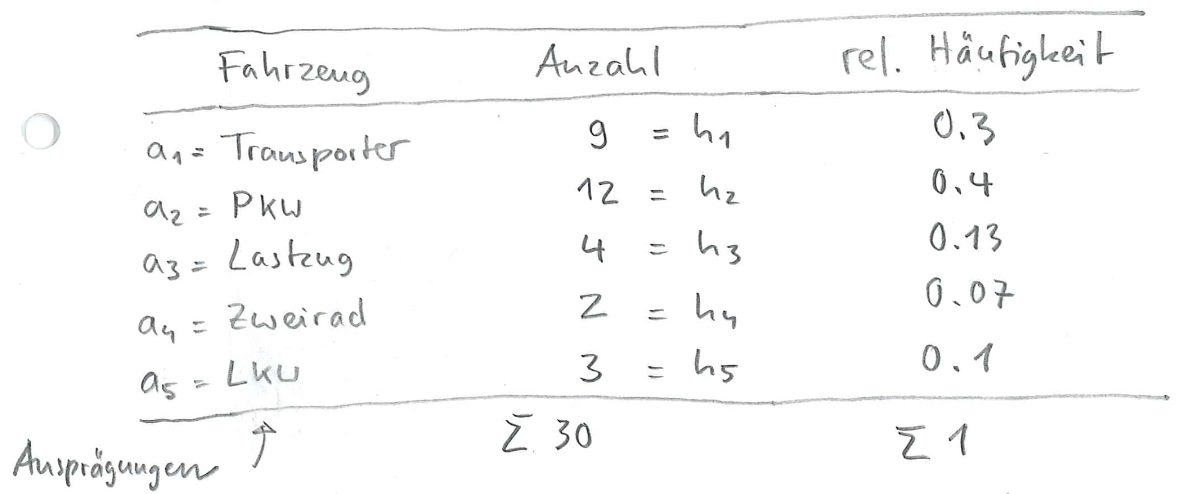 Fahrzeug Anzahl rel. Häufigkeit
a₁ = Transporter 9 = h₁ 0.3
a₂ = PKW 12 = h₂ 0.4
a₃ = Lastzug 4 = h₃ 0.13
a₄ = Zweirad 2 = h₄ 0.07
a₅ = LKW 3 = h₅ 0.1
Ausprägungen ↑ Σ 30 Σ 1